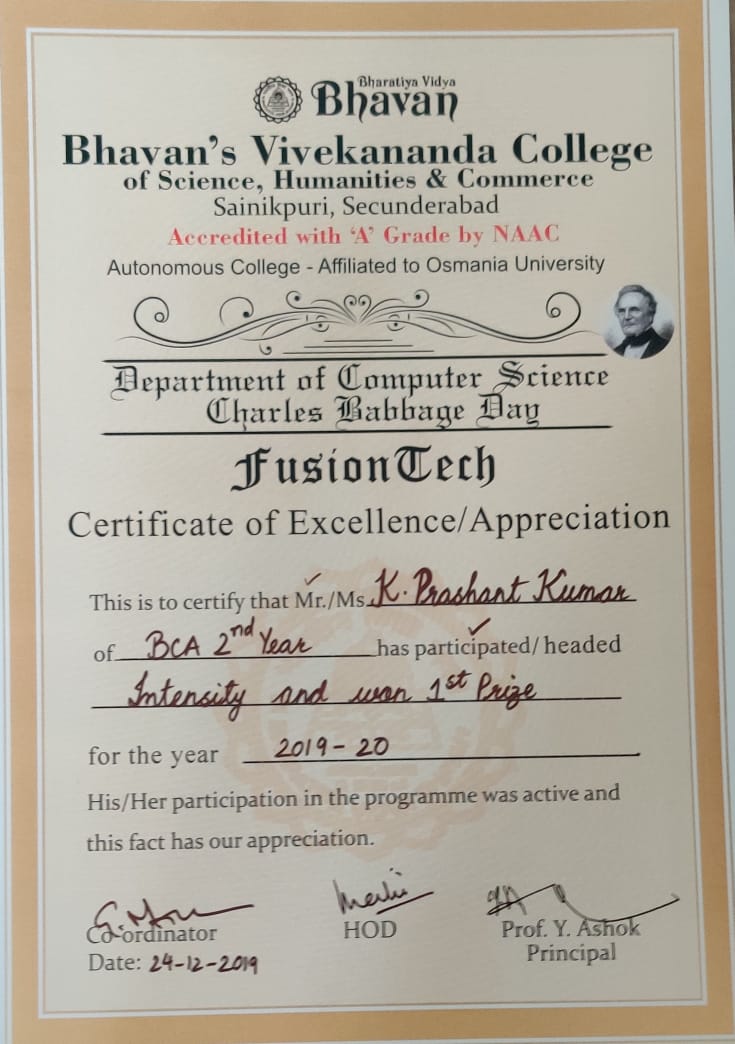 Bharatiya Vidya
Bhavan
Bhavan's Vivekananda College
of Science, Humanities & Commerce
Sainikpuri, Secunderabad
Accredited with 'A' Grade by NAAC
Autonomous College - Affiliated to Osmania University
Department of Computer Science
Charles Babbage Day
FusionTech
Certificate of Excellence/Appreciation
This is to certify that Mr./Ms. K. Prashant Kumar
of BCA 2nd Year has participated/ headed
Intensity and won 1st Prize
for the year 2019-20
His/Her participation in the programme was active and
this fact has our appreciation.
Co-ordinator HOD Prof. Y. Ashok
Date: 24-12-2019 Principal